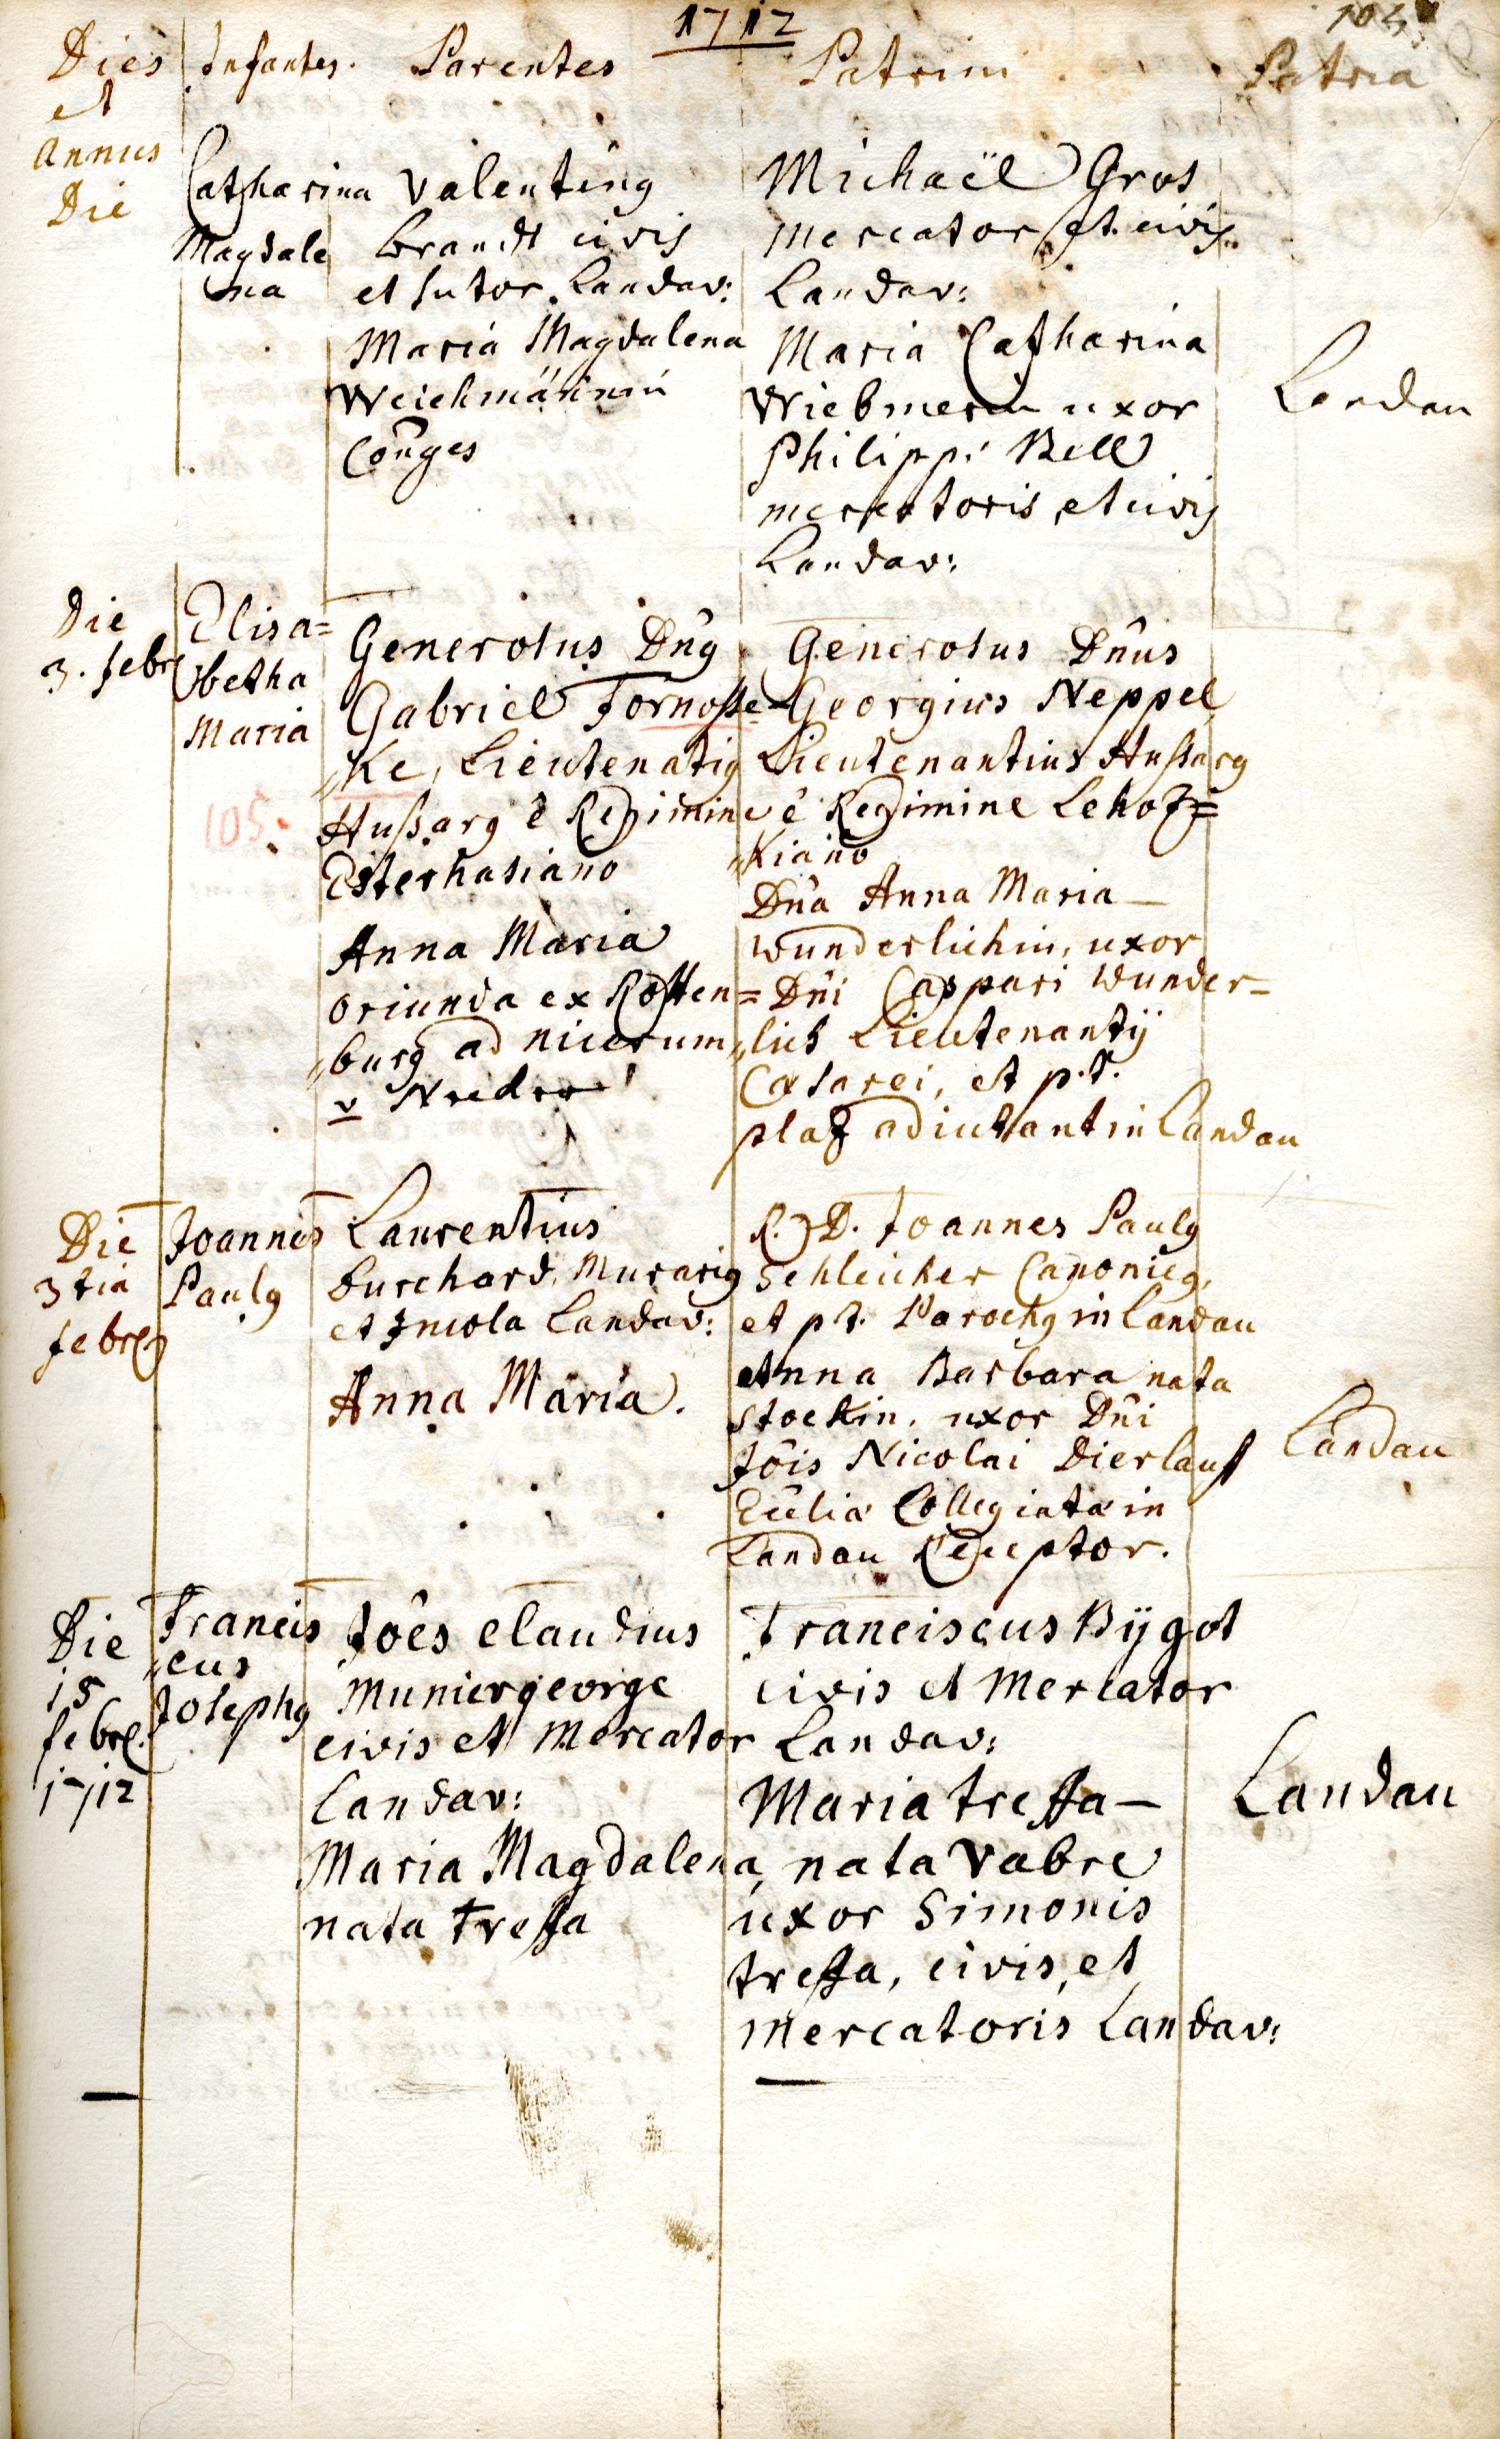 1712
Dies Infantes. Parentes Patrini Patria
et
Annus
Die
Catharina
Magdale
na
Valentinus
brandt civis
et sutor Landav:
Maria Magdalena
Weichmännin
Cônges
Michaël Gros
mercator et civis
Landav:
Maria Catharina
Wiebmerin uxor
Philippi Bell
mercatoris et civis
Landav:
Landau
Die
3. febr
Elisa=
betha
Maria
105.
Generosus Dn̂us
Gabriel Fornosse=
„ke, Lieutenatius
Hußarus ê Regimine
Esterhasiano
Anna Maria
oriunda ex Rotten=
„burg ad nicerum
v Neider
Generosus Dn̂us
Georgius Neppel
Lieutenantius Hußarus
ê Regimine Lehoz=
„kiano
Dn̂a Anna Maria —
Wunderlichin, uxor
Dn̂i Caspari Wunder=
„lich Lieutenantij
Cæsarei, et p.t.
plaz adiutant in Landau
Die
3tia
febr
Joannes
Paulus
Laurentius
burchard, Murarius
et Incola Landav:
Anna Maria.
R. D. Joannes Paulus
Schleicher Canonicus,
et pt. Parochus in Landau
Anna Barbara nata
Stockin, uxor Dn̂i
Jôis Nicolai Dierlauff
Ecc̃liæ Collegiatæ in
Landau Receptor.
Landau
Die
15
febr.
1712
Francis
„cus
Josephus
Jôes Claudius
Muniergeorge
civis et Mercator
Landav:
Maria Magdalena,
nata Tressa
Franciscus Bÿgot
civis et Mercator
Landav:
Maria tressa —
nata Vabre
uxor Simonis
tressa, civis, et
Mercatoris Landav:
Landau